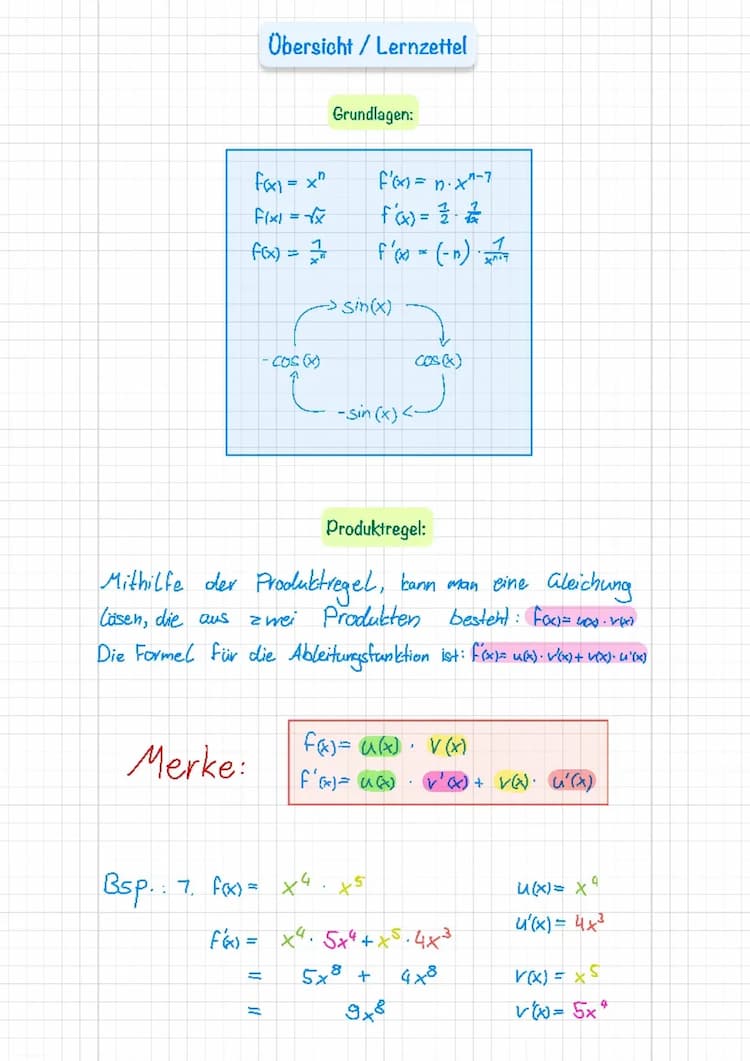 Übersicht / Lernzettel
Grundlagen:
f(x) = xⁿ f'(x) = n · xⁿ⁻¹
f(x) = √x f'(x) = 1/2 · 1/√x
f(x) = 1/xⁿ f'(x) = (-n) · 1/xⁿ⁺¹
sin(x)
-cos(x) cos(x)
-sin(x)
Produktregel:
Mithilfe der Produktregel, kann man eine Gleichung
lösen, die aus zwei Produkten besteht: f(x) = u(x) · v(x)
Die Formel für die Ableitungsfunktion ist: f'(x) = u(x) · v'(x) + v(x) · u'(x)
Merke:
f(x) = u(x) · v(x)
f'(x) = u(x) · v'(x) + v(x) · u'(x)
Bsp.: 1. f(x) = x⁴ · x⁵ u(x) = x⁴
u'(x) = 4x³
f'(x) = x⁴ · 5x⁴ + x⁵ · 4x³
= 5x⁸ + 4x⁸ v(x) = x⁵
= 9x⁸ v'(x) = 5x⁴